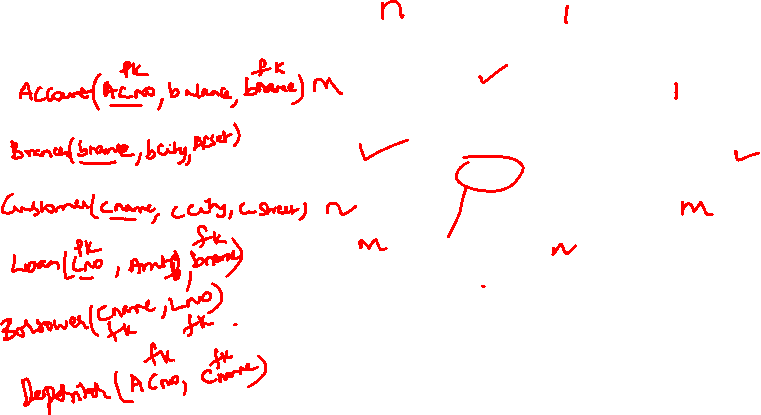 n 1
pk fk
Account(ACno, balance, bname) m 1
Branch(bname, bcity, Asset)
Customer(cname, ccity, cstreet) n m
pk fk m n
Loan(Lno, Amt, bname)
Borrower(Cname, Lno)
fk fk
fk fk
(ACno, Cname)